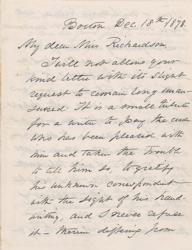 Boston Dec. 18th 1878.
My dear Miss Richardson,
I will not allow your
kind letter with its slight
request to remain long unan-
swered. It is a small tribute
for a writer to pay the reader
who has been pleased with
him and taken the trouble
to tell him so, to gratify
his unknown correspondent
with the sight of his hand-
writing, and I never refuse
it
from